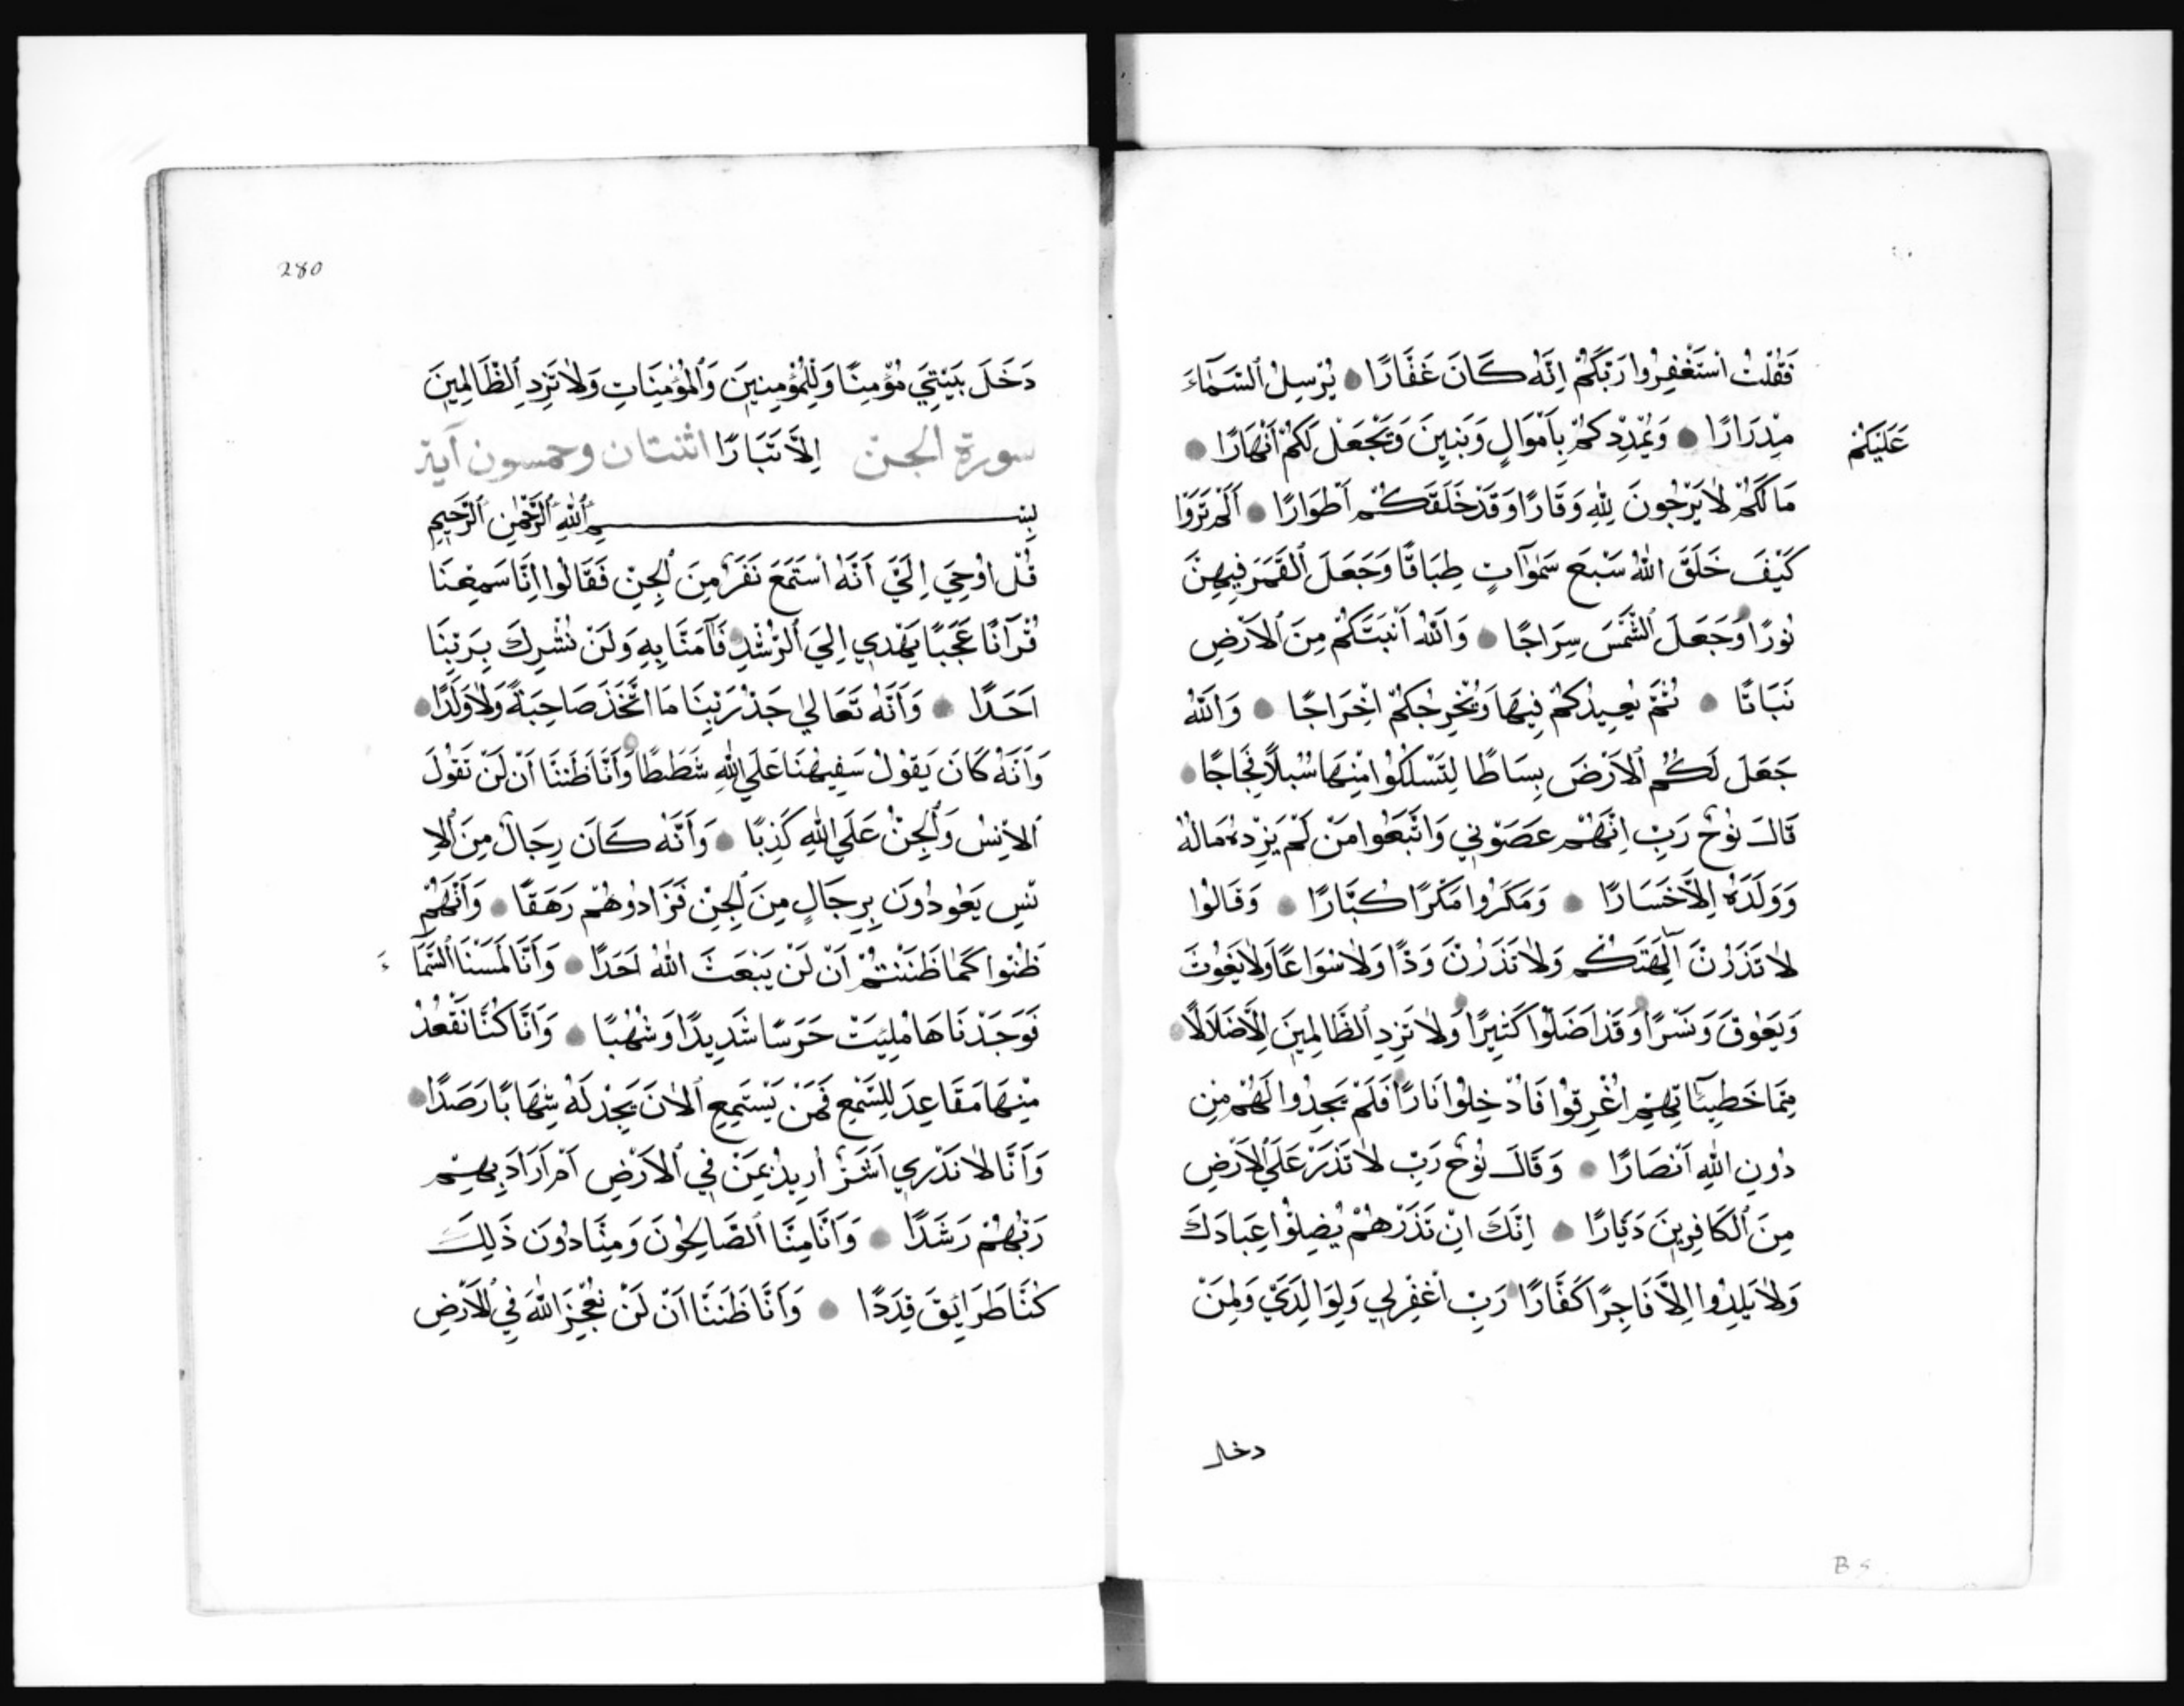 فَقُلْتُ اسْتَغْفِرُوا رَبَّكُمْ اِنَّهُ كَانَ غَفَّارًا يُرْسِلُ السَّمَآءَ
عَلَيْكُمْ
مِدْرَارًا وَيُمْدِدْكُمْ بِاَمْوَالٍ وَبَنِينَ وَيَجْعَلْ لَكُمْ اَنْهَارًا
مَالَكُمْ لَا يَرْجُونَ لِلّٰهِ وَقَارًا وَقَدْ خَلَقَكُمْ اَطْوَارًا اَلَمْ تَرَوْا
كَيْفَ خَلَقَ اللّٰهُ سَبْعَ سَمٰوَاتٍ طِبَاقًا وَجَعَلَ الْقَمَرَ فِيهِنَّ
نُورًا وَجَعَلَ الشَّمْسَ سِرَاجًا وَاللّٰهُ اَنْبَتَكُمْ مِنَ الْاَرْضِ
نَبَاتًا ثُمَّ يُعِيدُكُمْ فِيهَا وَيُخْرِجُكُمْ اِخْرَاجًا وَاللّٰهُ
جَعَلَ لَكُمُ الْاَرْضَ بِسَاطًا لِتَسْلُكُوا مِنْهَا سُبُلًا فِجَاجًا
قَالَ نُوحٌ رَبِّ اِنَّهُمْ عَصَوْنِي وَاتَّبَعُوا مَنْ لَمْ يَزِدْهُ مَالُهُ
وَوَلَدُهُ اِلَّا خَسَارًا وَمَكَرُوا مَكْرًا كُبَّارًا وَقَالُوا
لَا تَذَرُنَّ آلِهَتَكُمْ وَلَا تَذَرُنَّ وَدًّا وَلَا سُوَاعًا وَلَا يَغُوثَ
وَيَعُوقَ وَنَسْرًا وَقَدْ اَضَلُّوا كَثِيرًا وَلَا تَزِدِ الظَّالِمِينَ اِلَّا ضَلَالًا
مِمَّا خَطِيئَاتِهِمْ اُغْرِقُوا فَاُدْخِلُوا نَارًا فَلَمْ يَجِدُوا لَهُمْ مِنْ
دُونِ اللّٰهِ اَنْصَارًا وَقَالَ نُوحٌ رَبِّ لَا تَذَرْ عَلَى الْاَرْضِ
مِنَ الْكَافِرِينَ دَيَّارًا اِنَّكَ اِنْ تَذَرْهُمْ يُضِلُّوا عِبَادَكَ
وَلَا يَلِدُوا اِلَّا فَاجِرًا كَفَّارًا رَبِّ اغْفِرْ لِي وَلِوَالِدَيَّ وَلِمَنْ
دخل
280
دَخَلَ بَيْتِيَ مُؤْمِنًا وَلِلْمُؤْمِنِينَ وَالْمُؤْمِنَاتِ وَلَا تَزِدِ الظَّالِمِينَ
سورة الجن اِلَّا تَبَارًا اثنتان وخمسون آية
بِسْمِ اللّٰهِ الرَّحْمٰنِ الرَّحِيمِ
قُلْ اُوحِيَ اِلَيَّ اَنَّهُ اسْتَمَعَ نَفَرٌ مِنَ الْجِنِّ فَقَالُوا اِنَّا سَمِعْنَا
قُرْآنًا عَجَبًا يَهْدِي اِلَى الرُّشْدِ فَآمَنَّا بِهِ وَلَنْ نُشْرِكَ بِرَبِّنَا
اَحَدًا وَاَنَّهُ تَعَالَى جَدُّ رَبِّنَا مَا اتَّخَذَ صَاحِبَةً وَلَا وَلَدًا
وَاَنَّهُ كَانَ يَقُولُ سَفِيهُنَا عَلَى اللّٰهِ شَطَطًا وَاَنَّا ظَنَنَّا اَنْ لَنْ تَقُولَ
الْاِنْسُ وَالْجِنُّ عَلَى اللّٰهِ كَذِبًا وَاَنَّهُ كَانَ رِجَالٌ مِنَ الْاِ
نْسِ يَعُوذُونَ بِرِجَالٍ مِنَ الْجِنِّ فَزَادُوهُمْ رَهَقًا وَاَنَّهُمْ
ظَنُّوا كَمَا ظَنَنْتُمْ اَنْ لَنْ يَبْعَثَ اللّٰهُ اَحَدًا وَاَنَّا لَمَسْنَا السَّمَآءَ
فَوَجَدْنَاهَا مُلِئَتْ حَرَسًا شَدِيدًا وَشُهُبًا وَاَنَّا كُنَّا نَقْعُدُ
مِنْهَا مَقَاعِدَ لِلسَّمْعِ فَمَنْ يَسْتَمِعِ الْاٰنَ يَجِدْ لَهُ شِهَابًا رَصَدًا
وَاَنَّا لَا نَدْرِي اَشَرٌّ اُرِيدَ بِمَنْ فِي الْاَرْضِ اَمْ اَرَادَ بِهِمْ
رَبُّهُمْ رَشَدًا وَاَنَّا مِنَّا الصَّالِحُونَ وَمِنَّا دُونَ ذَلِكَ
كُنَّا طَرَائِقَ قِدَدًا وَاَنَّا ظَنَنَّا اَنْ لَنْ نُعْجِزَ اللّٰهَ فِي الْاَرْضِ